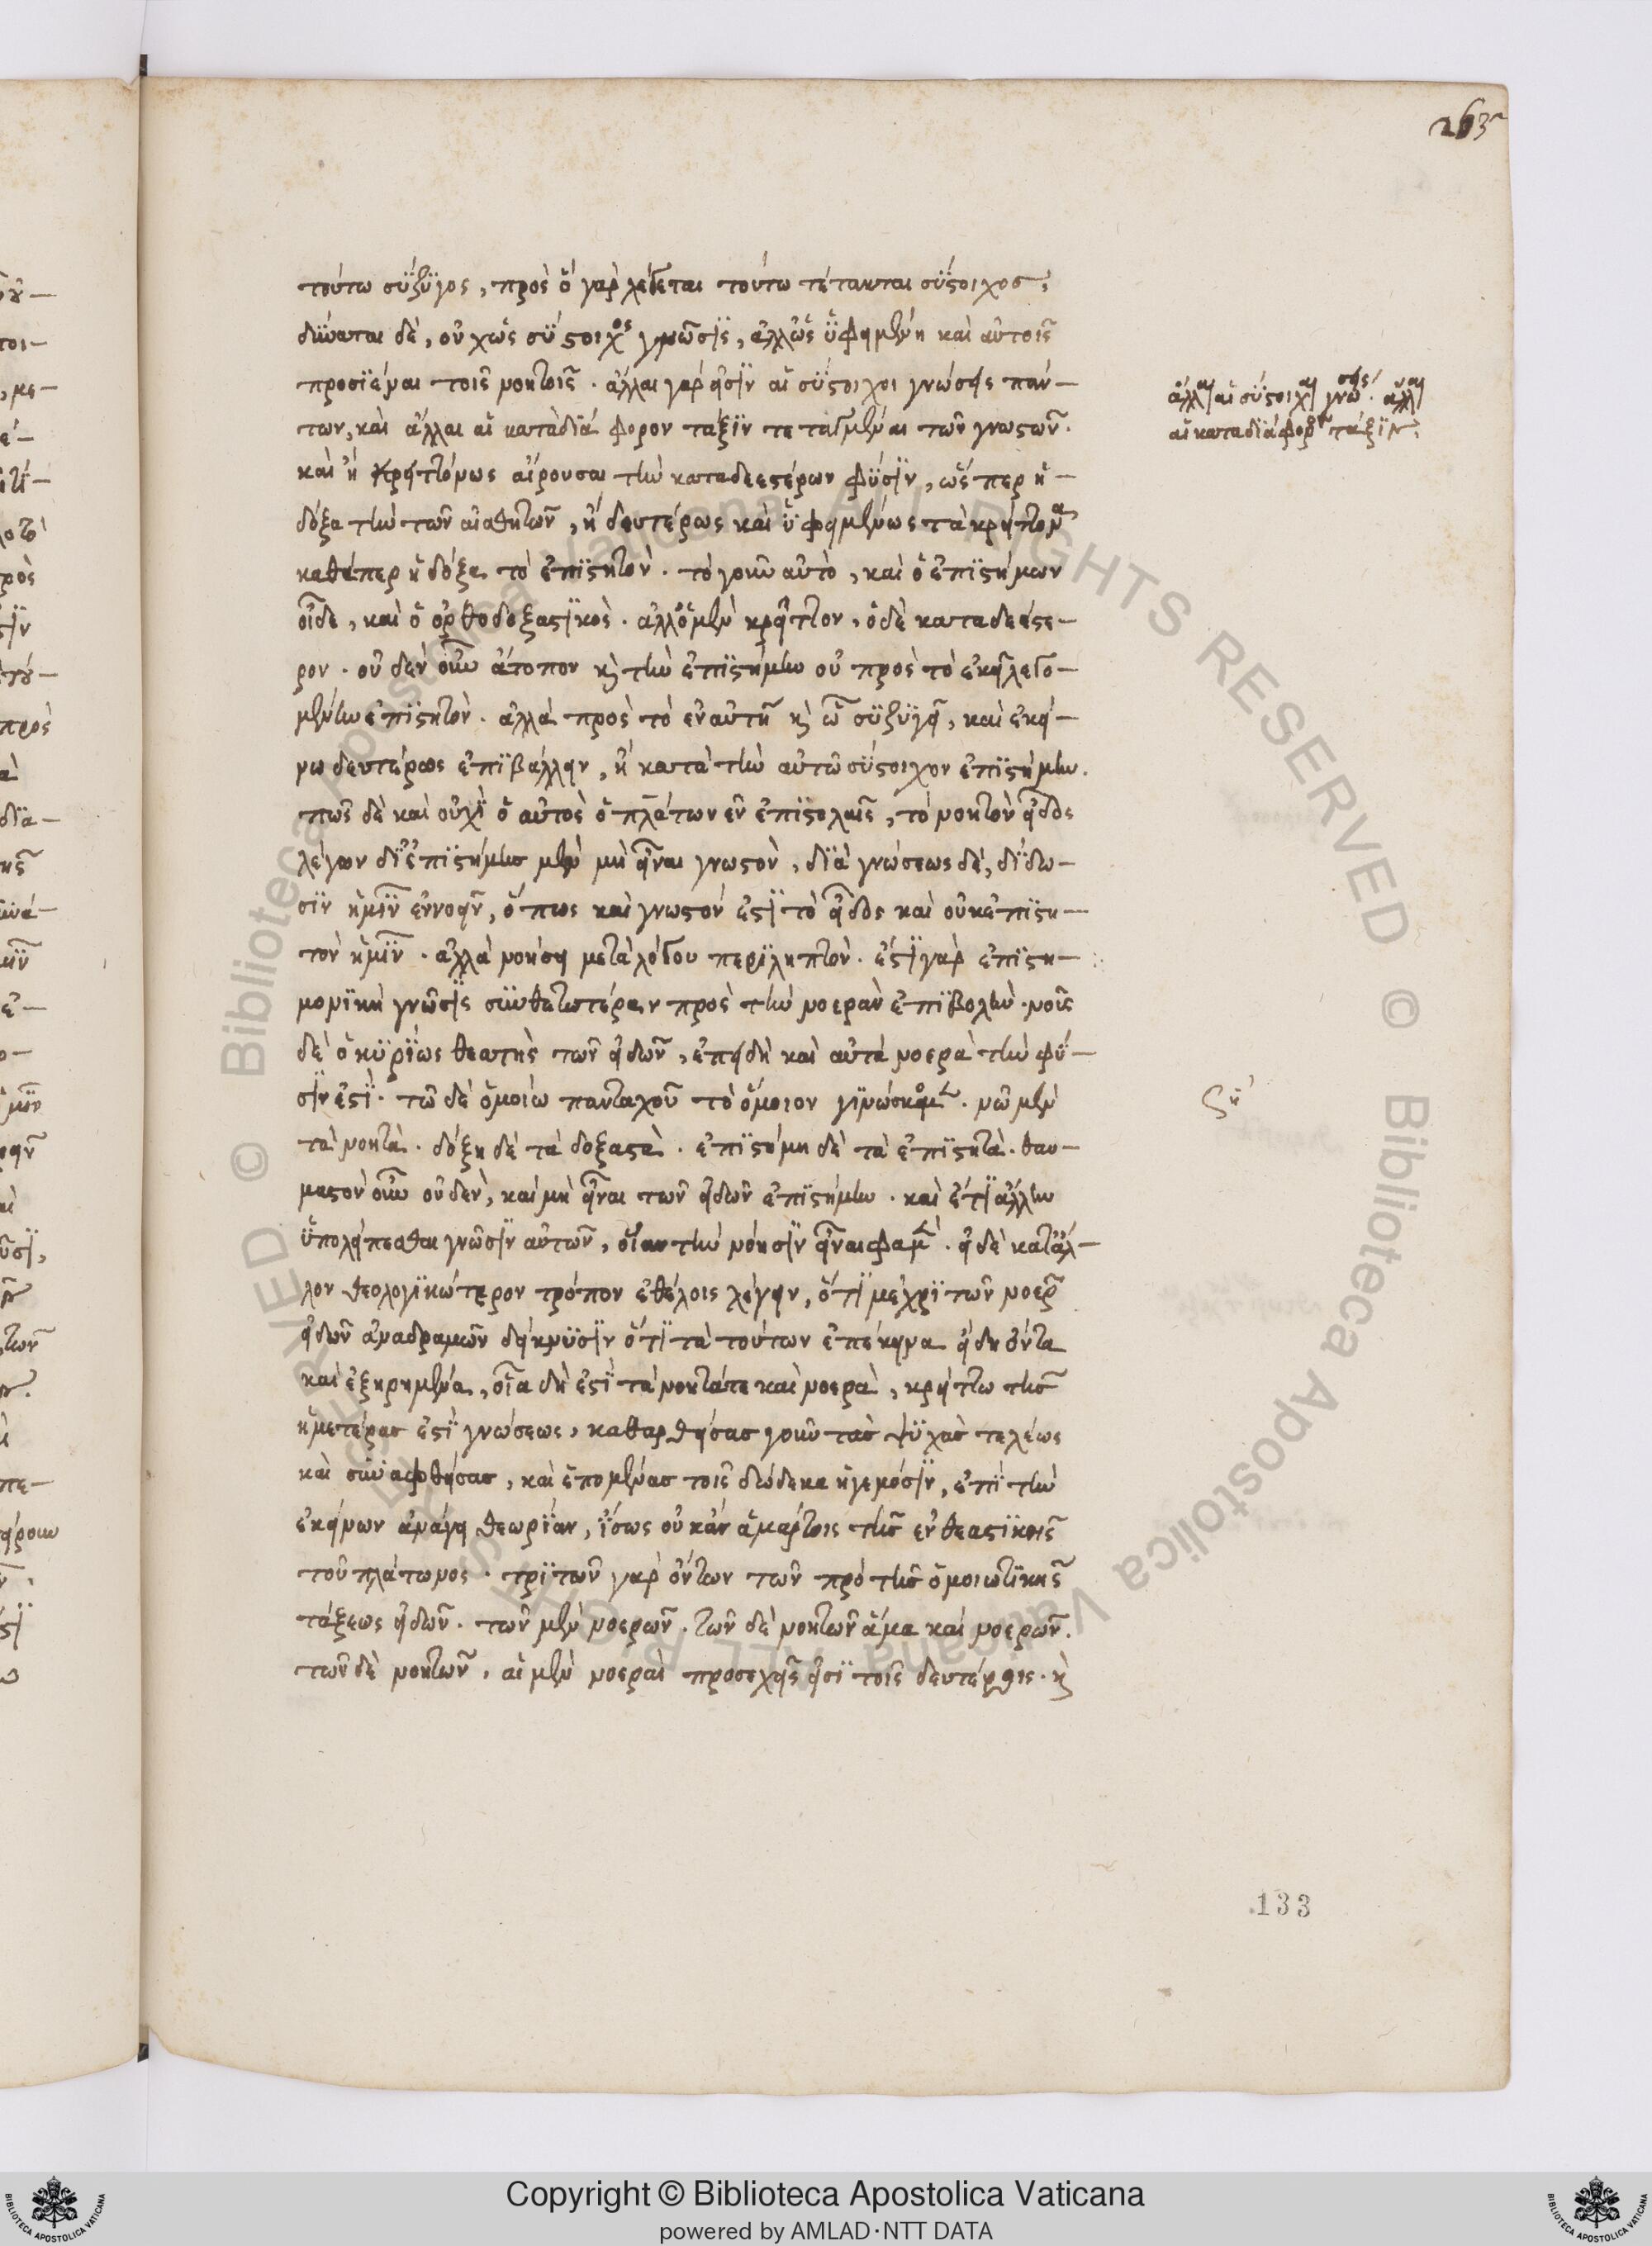 263
τούτω σύζυγος, πρὸς ὃ γὰρ λέγεται τούτω τέτακται σύστοιχος,
δύναται δὲ, οὐχ ὡς σύστοιχος γνῶσις, ἀλλ' ὡς ὑφειμένη καὶ αὐτοῖς
προσιέναι τοῖς νοητοῖς. ἄλλαι γάρ εἰσιν αἱ σύστοιχοι γνώσεις πάν-
των, καὶ ἄλλαι αἱ κατὰ διάφορον τάξιν τεταγμέναι τῶν γνωστῶν.
καὶ ἢ κρειττόνως αἱροῦσαι τὴν καταδεεστέρων φύσιν, ὥσπερ ἡ
δόξα τὴν τῶν αἰσθητῶν, ἢ δευτέρως καὶ ὑφειμένως τὰ κρείττονα
καθάπερ ἡ δόξα τὸ ἐπιστητόν. τὸ γοῦν αὐτὸ, καὶ ὁ ἐπιστήμων
οἶδε, καὶ ὁ ὀρθοδοξαστικὸς. ἀλλ' ὁ μὲν κρεῖττον, ὁ δὲ καταδεέστε-
ρον. οὐδὲν οὖν ἄτοπον καὶ τὴν ἐπιστήμην οὐ πρὸς τὸ ἐκεῖ λεγό-
μενον ἐπιστητὸν. ἀλλὰ πρὸς τὸ ἐν αὐτῇ καὶ ὧ συζυγεῖ, καὶ ἐκεί-
νω δευτέρως ἐπιβάλλειν, ἢ κατὰ τὴν αὐτῶ σύστοιχον ἐπιστήμην.
πῶς δὲ καὶ οὐχὶ ὁ αὐτὸς ὁ πλάτων ἐν ἐπιστολαῖς, τὸ νοητὸν εἶδος
λέγων δι' ἐπιστήμης μὲν μὴ εἶναι γνωστὸν, διὰ γνώσεως δὲ, δίδω-
σιν ἡμῖν ἐννοεῖν, ὅπως καὶ γνωστόν ἐστι τὸ εἶδος καὶ οὐκ ἐπιστη-
τὸν ἡμῖν. ἀλλὰ νοήσει μετὰ λόγου περιληπτὸν. ἔστι γὰρ ἐπιστη-
μονικὴ γνῶσις συνθετωτέρα ν πρὸς τὴν νοερὰν ἐπιβολὴν. νοῦς
δὲ ὁ κυρίως θεατὴς τῶν εἰδῶν, ἐπειδὴ καὶ αὐτὰ νοερὰ τὴν φύ-
σιν ἐστὶ. τῶ δὲ ὁμοίω πανταχοῦ τὸ ὅμοιον γινώσκομεν. νῶ μὲν
τὰ νοητὰ. δόξη δὲ τὰ δοξαστὰ. ἐπιστήμη δὲ τὰ ἐπιστητὰ. θαυ-
μαστὸν οὖν οὐδὲν, καὶ μὴ εἶναι τῶν εἰδῶν ἐπιστήμην. καὶ ἔτι ἄλλην
ὑπολείπεσθαι γνῶσιν αὐτῶν, οἵαν τὴν νόησιν εἶναι φαμὲν. εἰ δὲ κατ' ἄλ-
λον θεολογικώτερον τρόπον ἐθέλοις λέγειν, ὅτι μέχρι τῶν νοερῶν
εἰδῶν ἀναδραμὼν δείκνυσιν ὅτι τὰ τούτων ἐπέκεινα εἴδη ὄντα
καὶ ἐξηρημένα, οἷα δὴ ἐστὶ τὰ νοητά τε καὶ νοερὰ, κρείττω τῆς
ἡμετέρας ἐστὶ γνώσεως, καθαρθείσας γοῦν τὰς ψυχὰς τελέως
καὶ συναφθείσας, καὶ ἑπομένας τοῖς δώδεκα ἡγεμόσιν, ἐπὶ τὴν
ἐκείνων ἀνάγει θεωρίαν, ἴσως οὐκ ἂν ἁμάρτοις τῆς ἐνθεαστικῆς
τοῦ πλάτωνος. τριττῶν γὰρ ὄντων τῶν πρὸ τῆς ὁμοιωτικῆς
τάξεως εἰδῶν. τῶν μὲν νοερῶν. τῶν δὲ νοητῶν ἅμα καὶ νοερῶν.
τῶν δὲ νοητῶν, αἱ μὲν νοεραὶ προσεχεῖς εἰσὶ τοῖς δευτέροις. καὶ
ἄλλαι αἱ σύστοιχαι γνώσεις. ἄλλαι
αἱ κατὰ διάφορον τάξιν.
ζη
133
Copyright © Biblioteca Apostolica Vaticana
powered by AMLAD·NTT DATA
© Biblioteca Apostolica Vaticana ALL RIGHTS RESERVED © Biblioteca Apostolica Vaticana ALL RIGHTS RESERVED